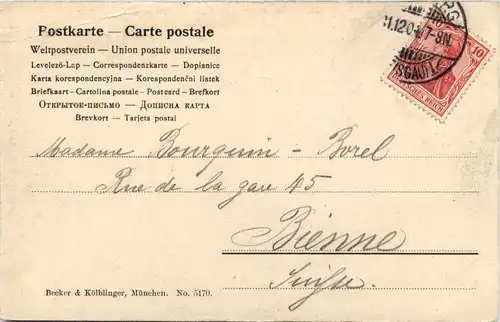 Postkarte — Carte postale
Weltpostverein — Union postale universelle
Levelező-Lap — Correspondenzkarte — Dopisnice
Karta korespondencyjna — Korespondenční lístek
Briefkaart - Cartolina postale - Postcard - Brefkort
Открытое-письмо — Дописна карта
Brevkort — Tarjeta postal
10
10
.12.04. 7-8N.
DEUTSCHES REICH
Madame Bourquin - Borel
Rue de la gare 45
Bienne
Suisse
Becker & Kölblinger, München. No. 5170.